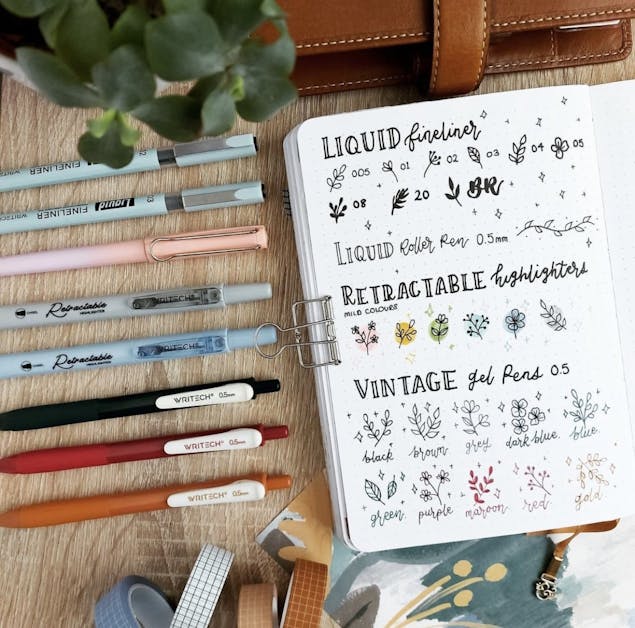 LIQUID fineliner
005 01 02 03 04 05
08 20 BR
LIQUID Roller Pen 0.5mm
RETRACTABLE highlighters
MILD COLOURS
VINTAGE gel Pens 0.5
black brown grey dark blue blue
green purple maroon red gold
FINELINER
FINELINER liquid
Retractable WRITECH
Retractable WRITECH
WRITECH 0.5mm
WRITECH 0.5mm
WRITECH 0.5mm